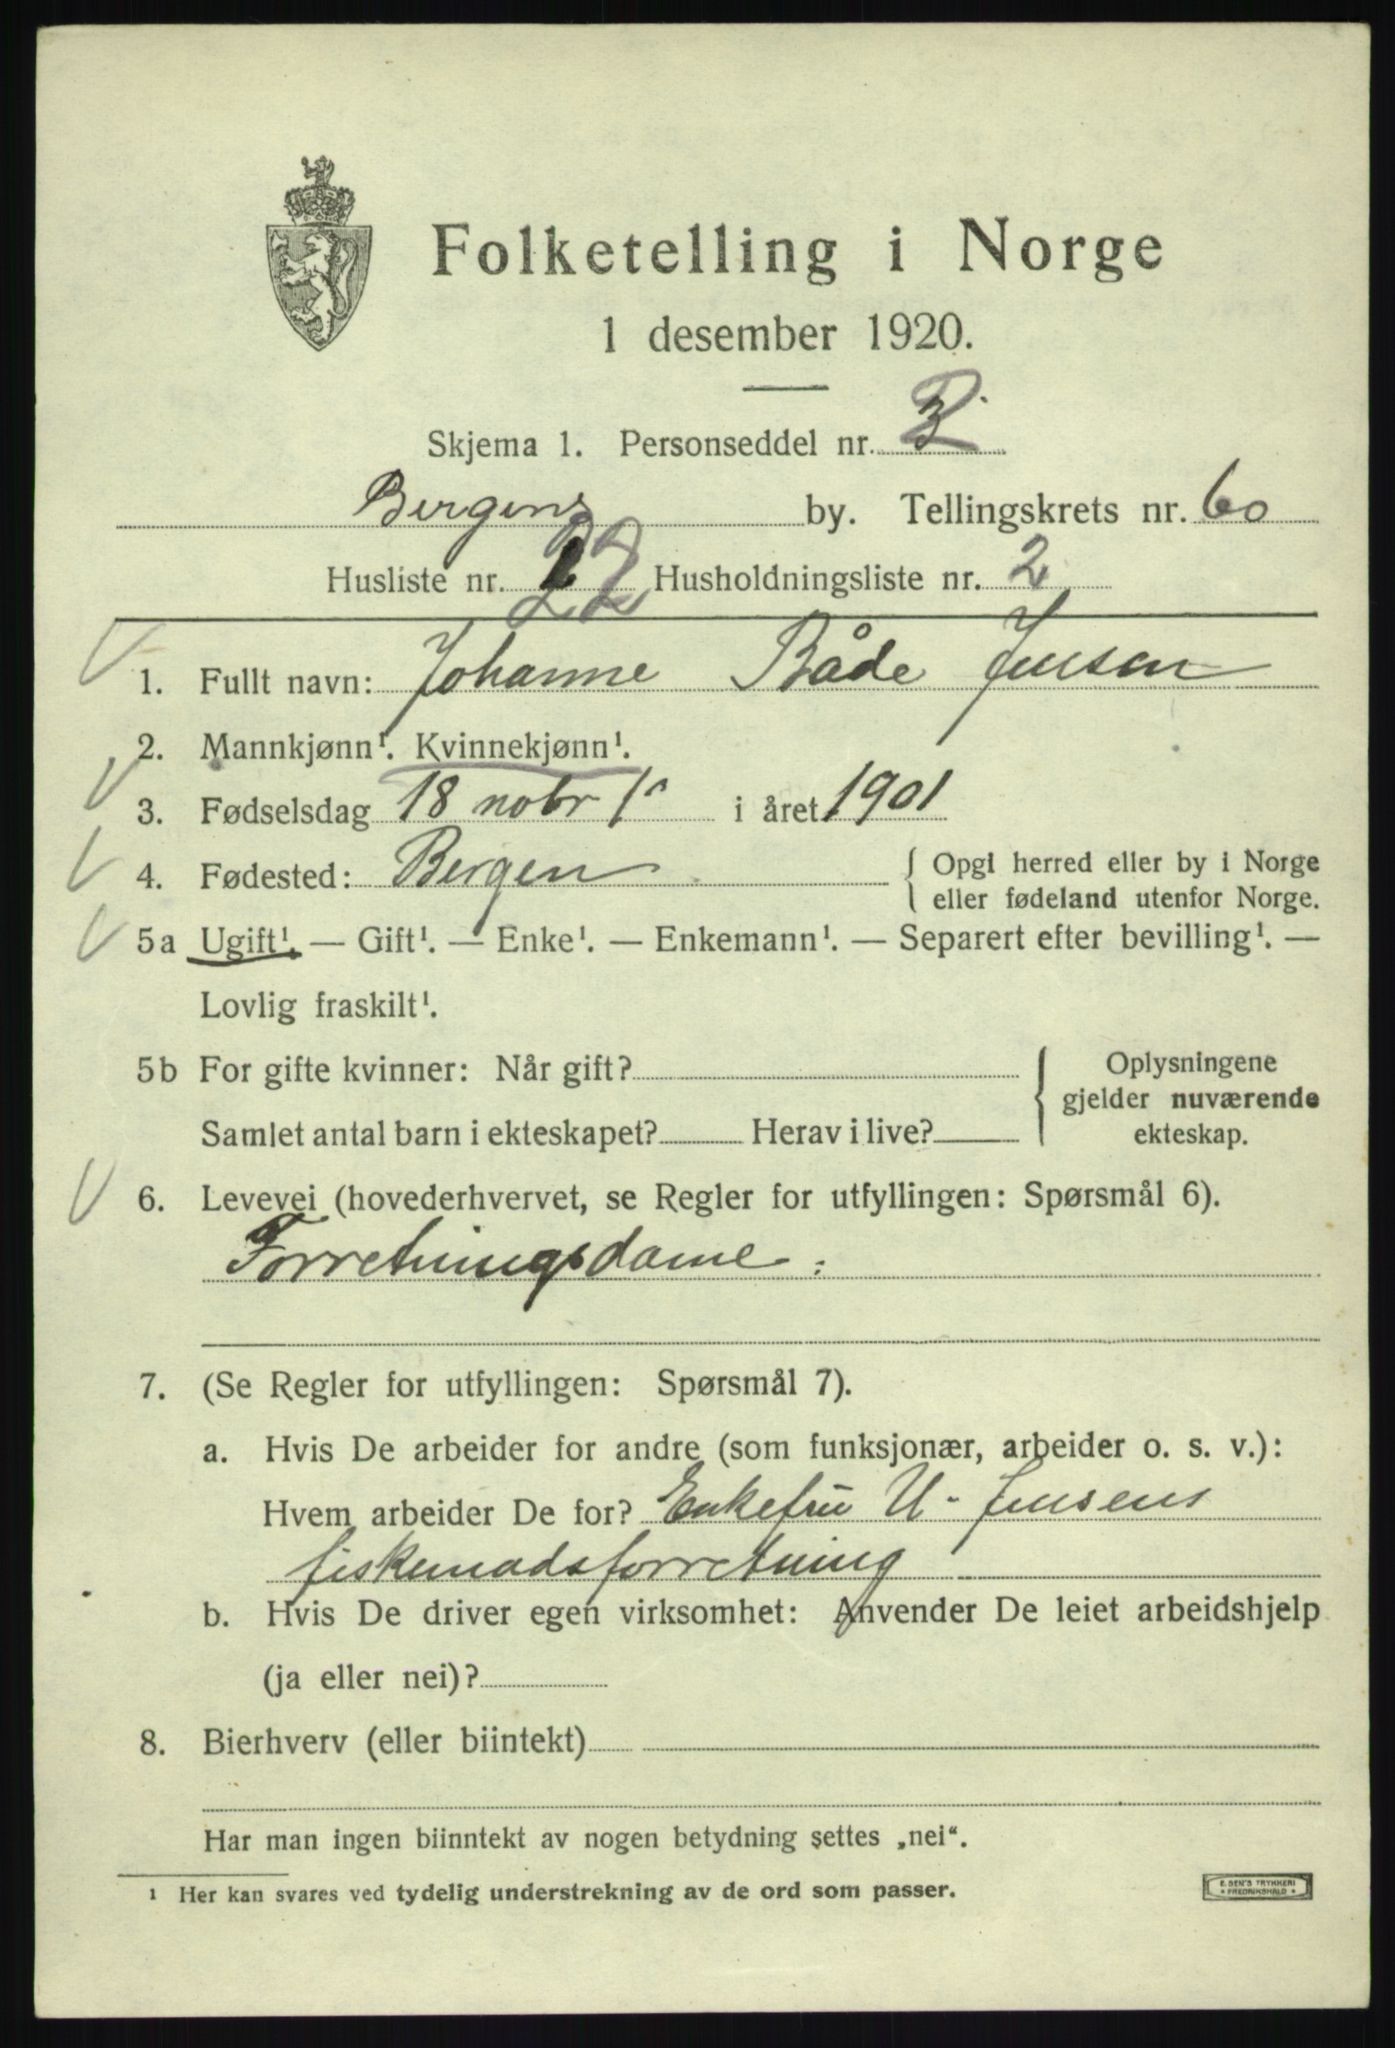 Folketelling i Norge
1 desember 1920.
Skjema 1. Personseddel nr. 3
Bergens by. Tellingskrets nr. 60
Husliste nr. 22 Husholdningsliste nr. 2
1. Fullt navn: Johanne Både Jensen
2. Mannkjønn¹. Kvinnekjønn¹.
3. Fødselsdag 18 nobr i året 1901
4. Fødested: Bergen { Opgi herred eller by i Norge
eller fødeland utenfor Norge.
5a Ugift¹. — Gift¹. — Enke¹. — Enkemann¹. — Separert efter bevilling¹. —
Lovlig fraskilt¹.
5b For gifte kvinner: Når gift? { Oplysningene
gjelder nuværende
Samlet antal barn i ekteskapet? Herav i live? ekteskap.
6. Levevei (hovederhvervet, se Regler for utfyllingen: Spørsmål 6).
Forretningsdame
7. (Se Regler for utfyllingen: Spørsmål 7).
a. Hvis De arbeider for andre (som funksjonær, arbeider o. s. v.):
Hvem arbeider De for? Enkefru U. Jensens
fiskemadsforretning
b. Hvis De driver egen virksomhet: Anvender De leiet arbeidshjelp
(ja eller nei)?
8. Bierhverv (eller biintekt)
Har man ingen biinntekt av nogen betydning settes „nei“.
¹ Her kan svares ved tydelig understrekning av de ord som passer.
E. SEM'S TRYKKERI
FREDRIKSHALD